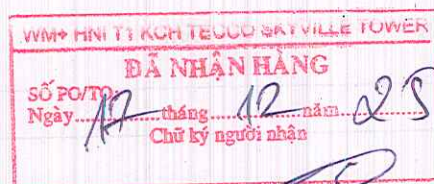 WM+ HNI T1 KCH TECCO SKYVILLE TOWER
ĐÃ NHẬN HÀNG
SỐ PO/TO:
Ngày 17 tháng 12 năm 25
Chữ ký người nhận